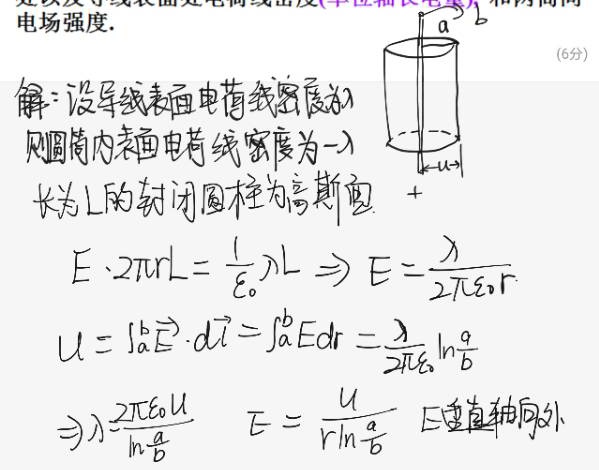 处以及导线表面处电荷线密度(单位轴长电量), 和两筒间
电场强度.
(6分)
a b
u
+
解:设导线表面电荷线密度为λ
则圆筒内表面电荷线密度为-λ
长为L的封闭圆柱为高斯面
E·2πrL = 1/ε₀ λL ⇒ E = λ/2πε₀r
U = ∫ₐᵇ E⃗·dl⃗ = ∫ₐᵇ Edr = λ/2πε₀ ln a/b
⇒λ = 2πε₀U/ln a/b E = U/r ln a/b E垂直轴向外